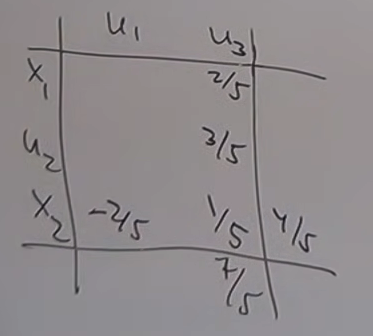 u1 u3
x1 2/5
u2 3/5
x2 -2/5 1/5 4/5
7/5